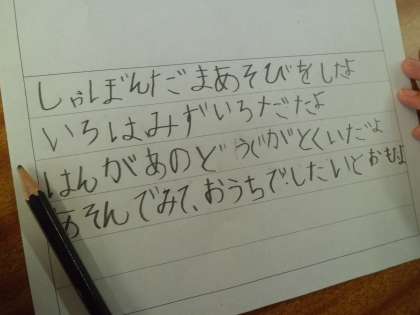 しゃぼんだごまあそびをしたよ
いろはみずいろだたよ
はんがあのど うぐがとくいだよ
あそんでみて、おうちで、したいとおもよ